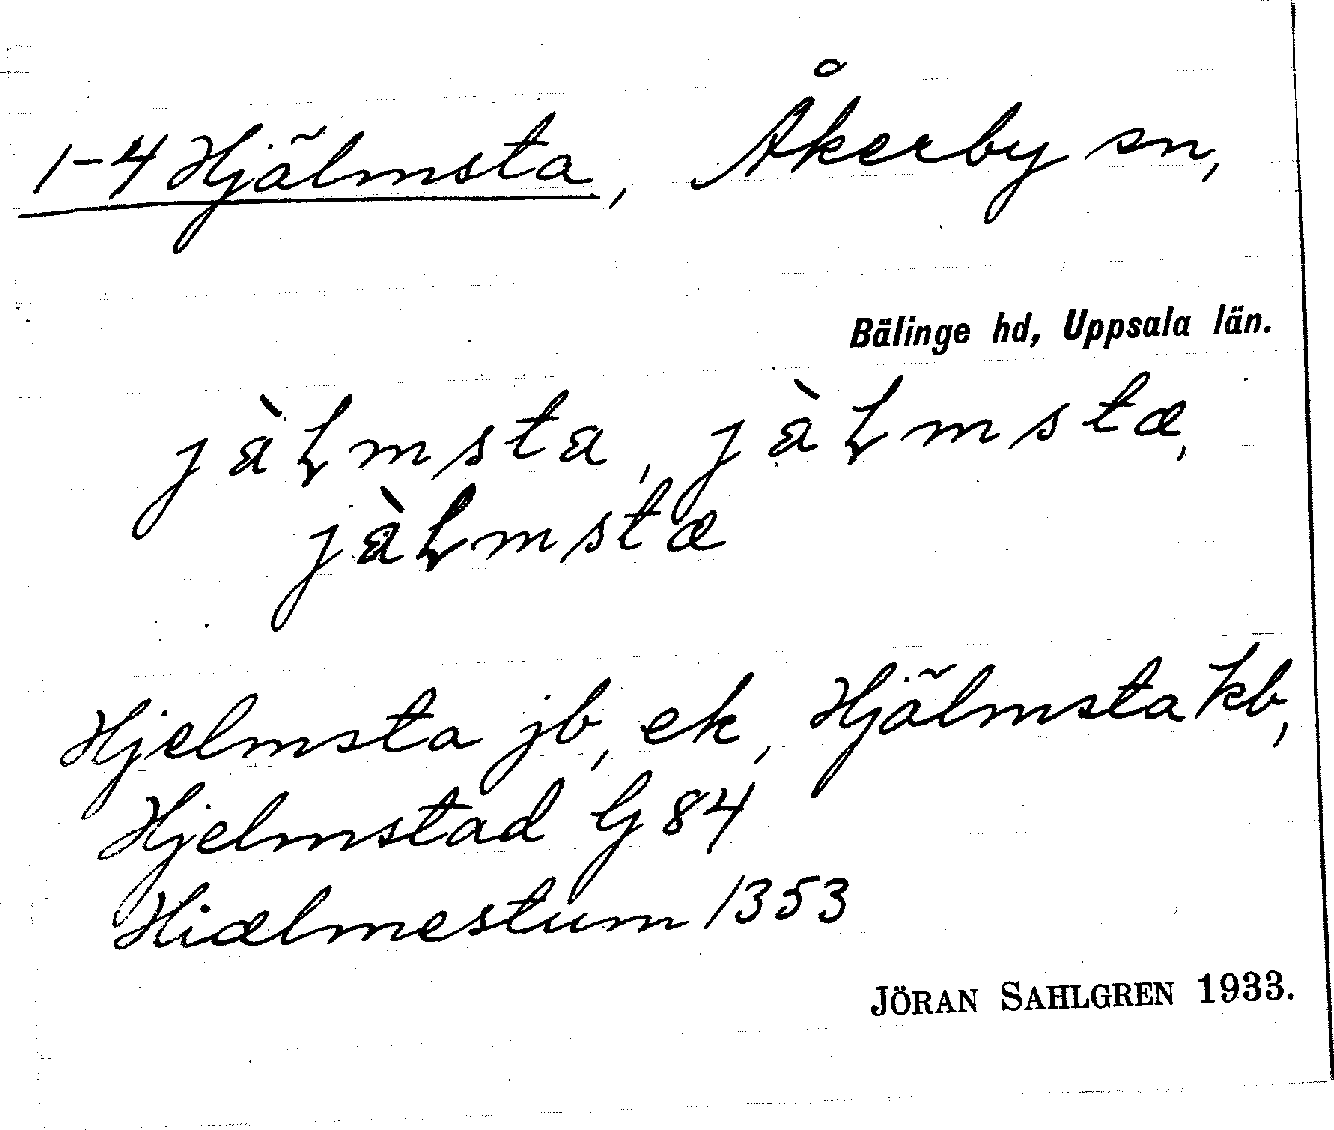 1-4 Hjälmsta, Åkerby sn,
Bälinge hd, Uppsala län.
jàɫmsta, jàɫmstæ,
jàɫmstæ
Hjelmsta jb, ek, Hjälmsta kb,
Hjelmstad Gj 84
Hiælmestum 1353
JÖRAN SAHLGREN 1933.